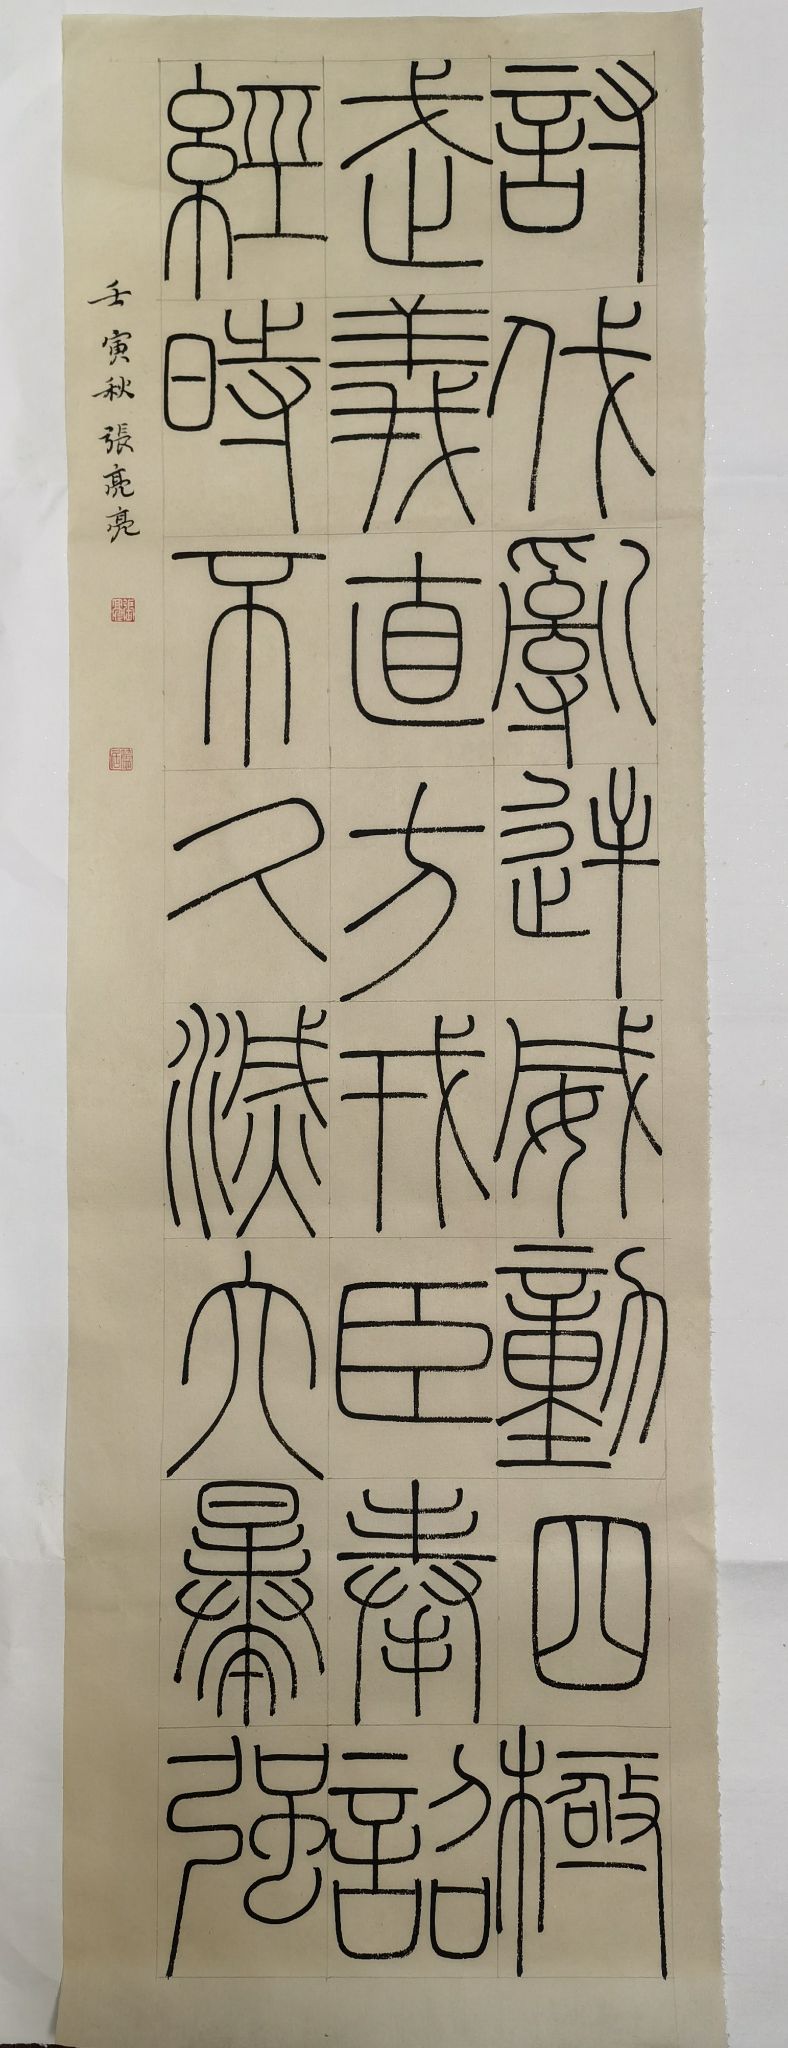 討伐亂逆威動四極
武義直方戎臣奉詔
經時不久滅六暴強
壬寅秋張亮亮